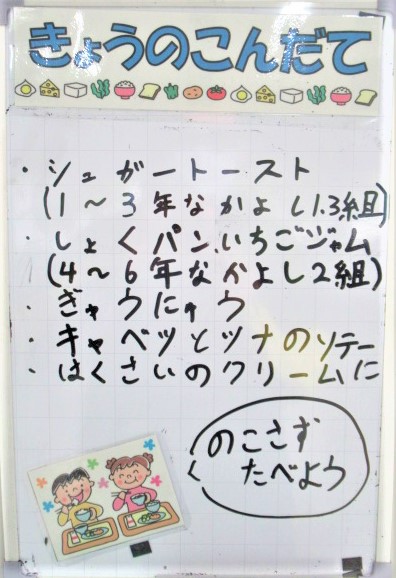 きょうのこんだて
・シュガートースト
(1～3年なかよし1.3組)
・しょくパン、いちごジャム
(4～6年なかよし2組)
・ぎゅうにゅう
・キャベツとツナのソテー
・はくさいのクリームに
のこさず
たべよう